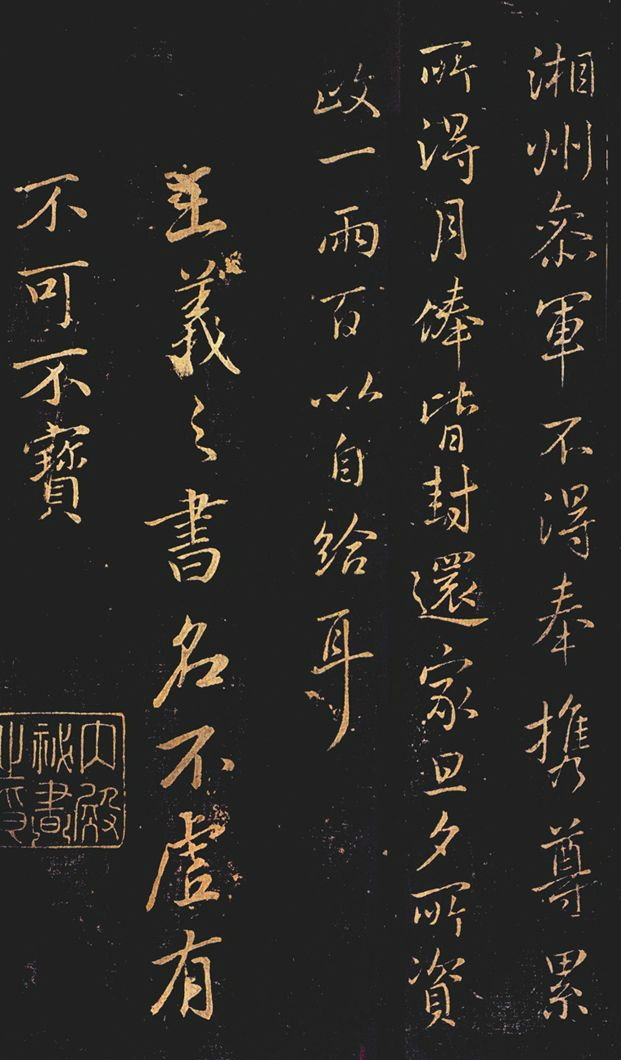 湘州叅軍不得奉携尊累
所得月俸皆封還家旦夕所資
政一兩百以自給耳
王羲之書名不虛有
不可不寶
內殿
祕書
之印